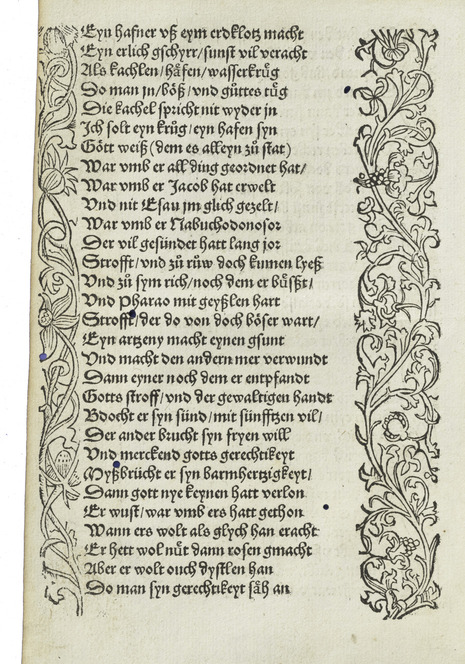 Eyn hafner vß eym erdklotz macht
Eyn erlich gschyrr/sunst vil veracht
Als kachlen/håfen/wasserkrüg
Do man jn/bößs/vnd güttes tüg
Die kachel spricht nit wyder jn
Ich solt eyn krüg/eyn hafen syn
Gött weiß (dem es alleyn zů stat)
War vmb er all ding geordnet hat/
War vmb er Jacob hat erwelt
Vnd nit Esau jm glich gezelt/
War vmb er Nabuchodonosor
Der vil gesündet hatt lang jor
Strofft/vnd zů rüw doch kumen lyeß
Vnd zů sym rich/noch dem er büßt/
Vnd Pharao mit geyßlen hart
Strofft/der do von doch böser wart/
Eyn artzeny macht eynen gsunt
Vnd macht den andern mer verwundt
Dann eyner noch dem er entpfandt
Gotts stroff/vnd der gewaltigen handt
Bdocht er syn sünd/mit sünfftzen vil/
Der ander brucht syn fryen will
Vnd merckend gotts gerechtikeyt
Myßbrücht er syn barmhertzigkeyt/
Dann gott nye keynen hatt verlon
Er wust/war vmb ers hatt gethon
Wann ers wolt als glych han eracht
Er hett wol nüt dann rosen gmacht
Aber er wolt ouch dystlen han
Do man syn gerechtikeyt såh an